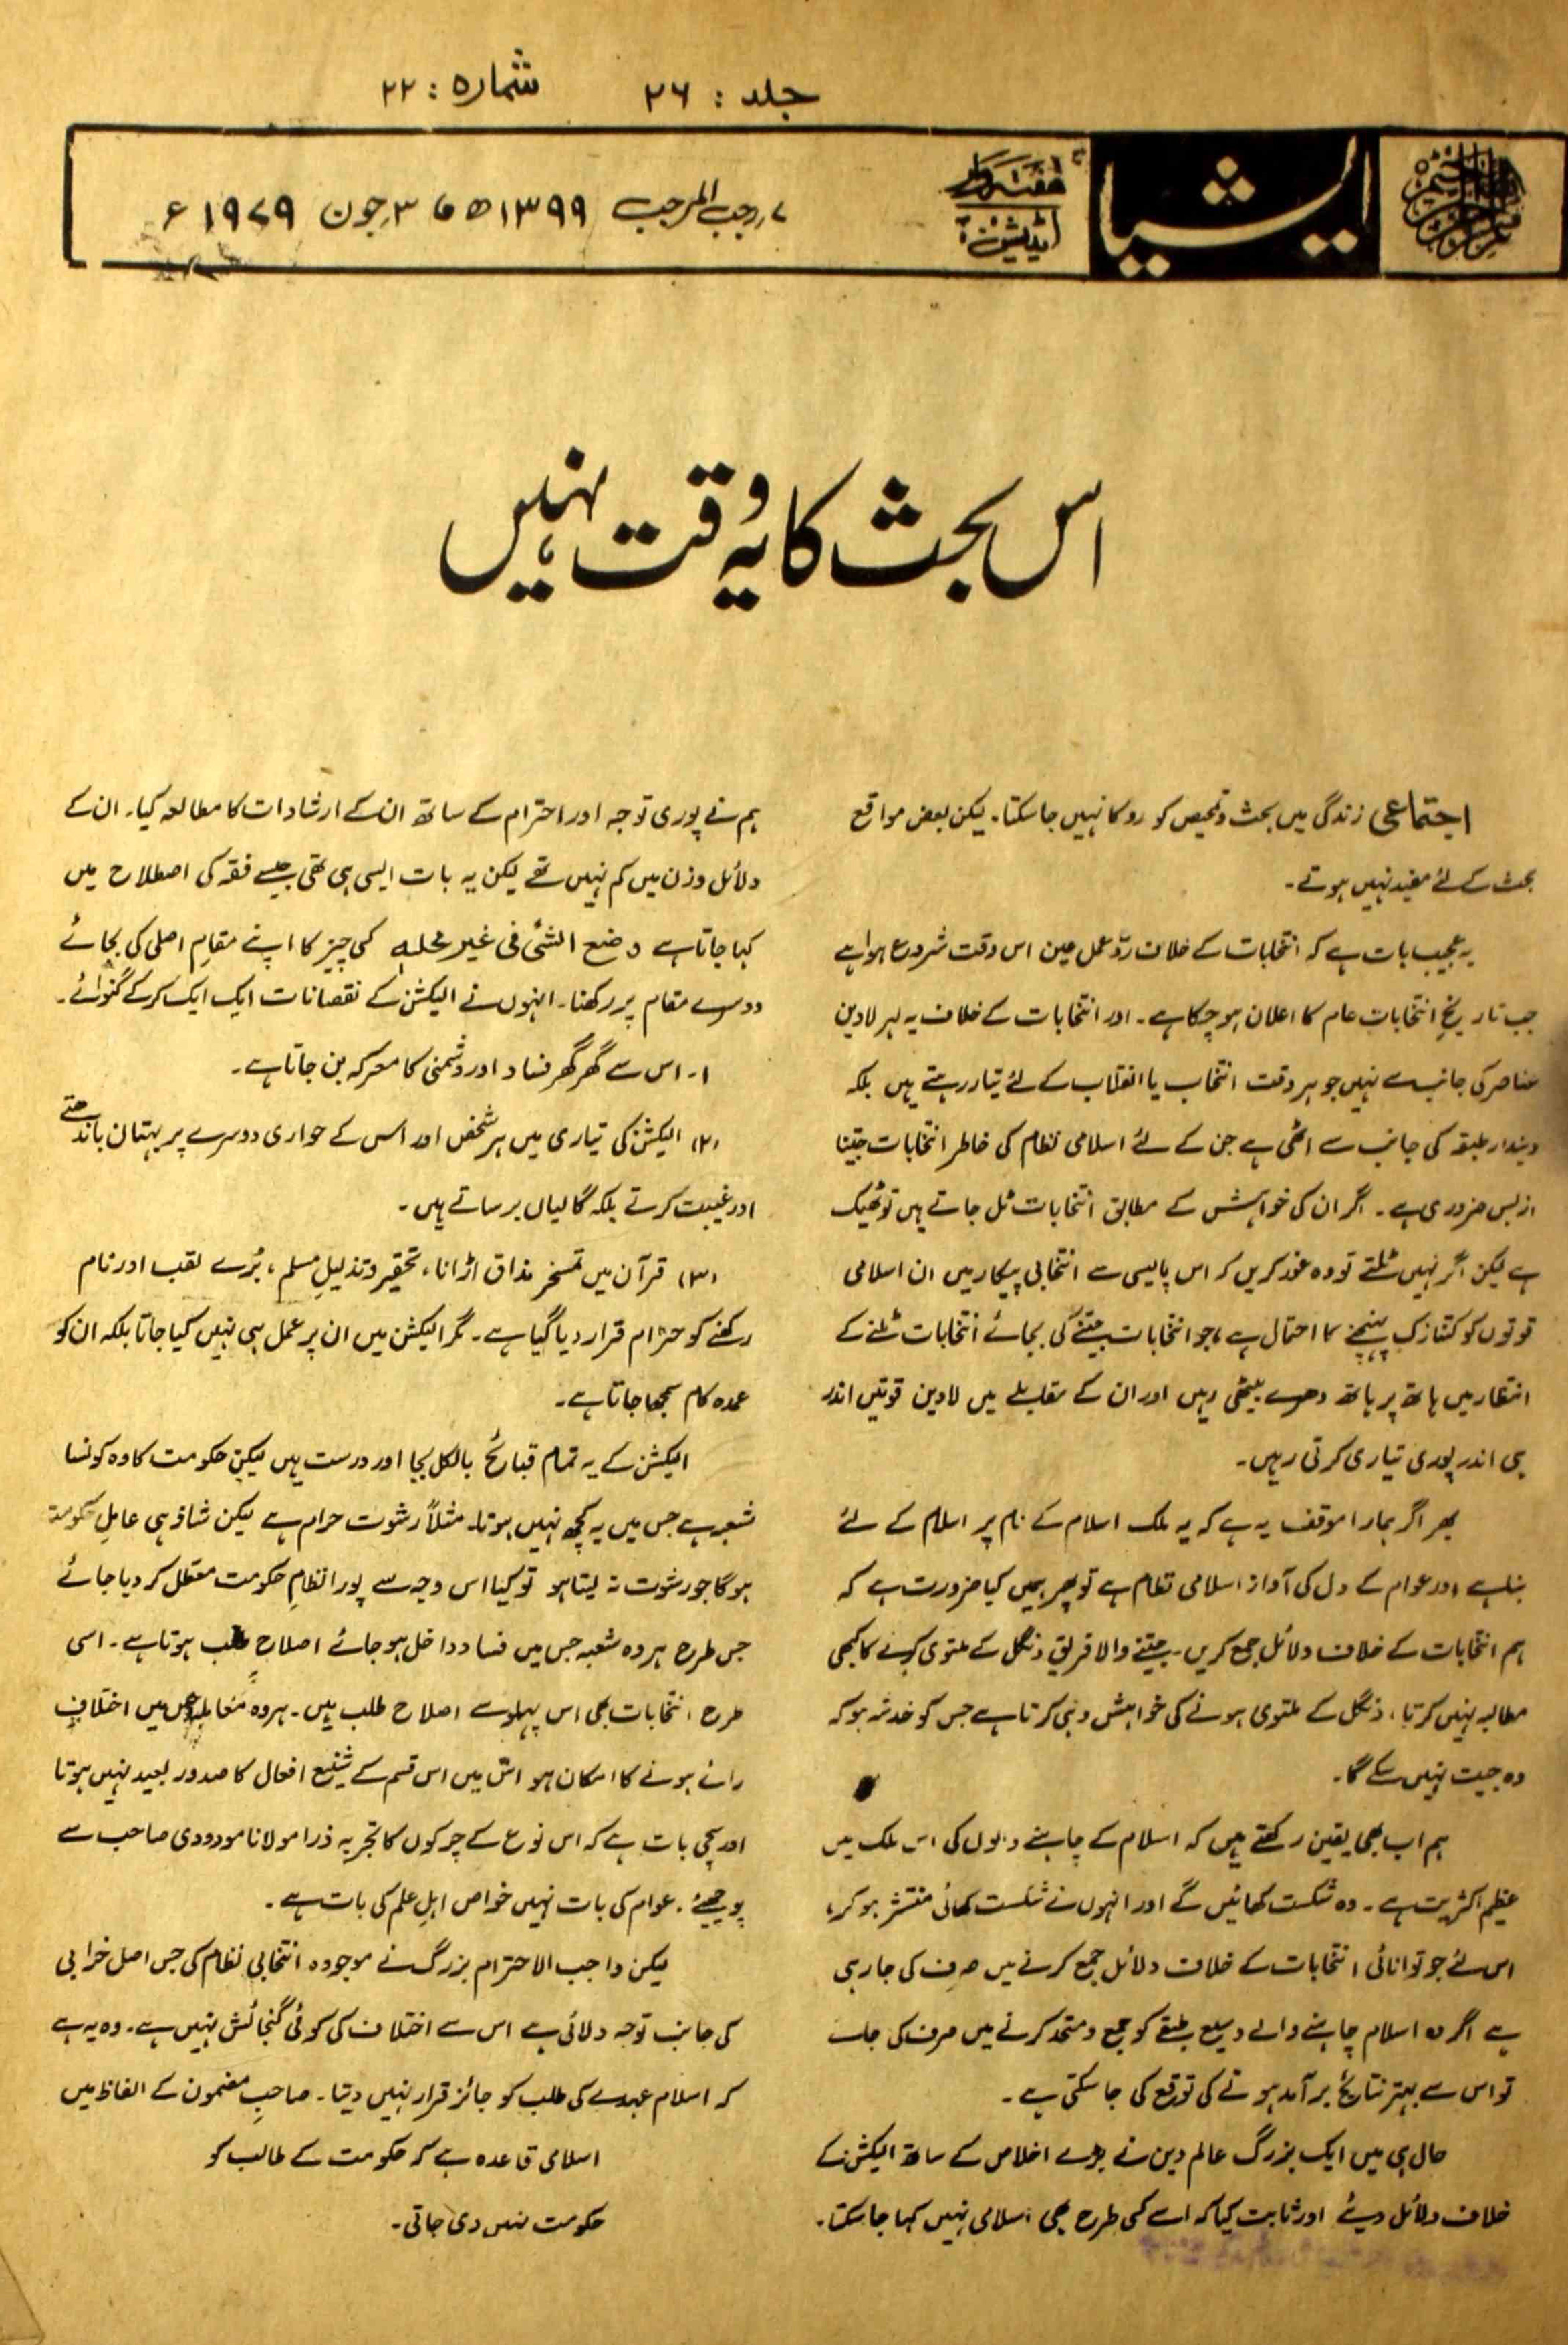 جلد : ۲۶ شمارہ : ۲۲
ایشیا
ہفتہ وار
ایڈیشن
۷ رجب المرجب ۱۳۹۹ھ ۳ جون ۱۹۷۹ء
اس بحث کا یہ وقت نہیں
اجتماعی زندگی میں بحث و تمحیص کو روکا نہیں جا سکتا۔ لیکن بعض مواقع
بحث کے لئے مفید نہیں ہوتے۔
یہ عجیب بات ہے کہ انتخابات کے خلاف ردّ عمل عین اس وقت شروع ہوا ہے
جب تاریخِ انتخاباتِ عام کا اعلان ہو چکا ہے۔ اور انتخابات کے خلاف یہ لہر لادین
عناصر کی جانب سے نہیں جو ہر وقت انتخاب یا انقلاب کے لئے تیار رہتے ہیں بلکہ
دیندار طبقہ کی جانب سے اٹھی ہے جن کے لئے اسلامی نظام کی خاطر انتخابات جیتنا
ازبس ضروری ہے۔ اگر ان کی خواہش کے مطابق انتخابات ٹل جاتے ہیں تو ٹھیک
ہے لیکن اگر نہیں ٹلتے تو وہ غور کریں کہ اس پالیسی سے انتخابی پیکار میں ان اسلامی
قوتوں کو کتنا زک پہنچنے کا احتمال ہے، جو انتخابات جیتنے کی بجائے انتخابات ٹلنے کے
انتظار میں ہاتھ پر ہاتھ دھرے بیٹھی رہیں اور ان کے مقابلے میں لادین قوتیں اندر
ہی اندر پوری تیاری کرتی رہیں۔
پھر اگر ہمارا موقف یہ ہے کہ یہ ملک اسلام کے نام پر اسلام کے لئے
بنا ہے اور عوام کے دل کی آواز اسلامی نظام ہے تو پھر ہمیں کیا ضرورت ہے کہ
ہم انتخابات کے خلاف دلائل جمع کریں۔ جیتنے والا فریق دنگل کے ملتوی کرنے کا کبھی
مطالبہ نہیں کرتا، دنگل کے ملتوی ہونے کی خواہش وہی کرتا ہے جس کو خدشہ ہو کہ
وہ جیت نہیں سکے گا۔
ہم اب بھی یقین رکھتے ہیں کہ اسلام کے چاہنے والوں کی اس ملک میں
عظیم اکثریت ہے۔ وہ شکست کھائیں گے اور انہوں نے شکست کھائی منتشر ہو کر،
اس لئے جو توانائی انتخابات کے خلاف دلائل جمع کرنے میں صرف کی جا رہی
ہے اگر وہ اسلام چاہنے والے وسیع طبقے کو جمع و متحد کرنے میں صرف کی جائے
تو اس سے بہتر نتائج برآمد ہونے کی توقع کی جا سکتی ہے۔
حال ہی میں ایک بزرگ عالم دین نے بڑے اخلاص کے ساتھ الیکشن کے
خلاف دلائل دیئے اور ثابت کیا کہ اسے کسی طرح بھی اسلامی نہیں کہا جا سکتا۔
ہم نے پوری توجہ اور احترام کے ساتھ ان کے ارشادات کا مطالعہ کیا۔ ان کے
دلائل وزن میں کم نہیں تھے لیکن یہ بات ایسی ہی تھی جسے فقہ کی اصطلاح میں
کہا جاتا ہے وضع الشئ فی غیر محلہ کسی چیز کا اپنے مقامِ اصلی کی بجائے
دوسرے مقام پر رکھنا۔ انہوں نے الیکشن کے نقصانات ایک ایک کر کے گنوائے۔
۱۔ اس سے گھر گھر فساد اور دشمنی کا معرکہ بن جاتا ہے۔
(۲) الیکشن کی تیاری میں ہر شخص اور اس کے حواری دوسرے پر بہتان باندھتے
اور غیبت کرتے بلکہ گالیاں برساتے ہیں۔
(۳) قرآن میں تمسخر مذاق اڑانا، تحقیر و تذلیلِ مسلم، بُرے لقب اور نام
رکھنے کو حرام قرار دیا گیا ہے۔ مگر الیکشن میں ان پر عمل ہی نہیں کیا جاتا بلکہ ان کو
عمدہ کام سمجھا جاتا ہے۔
الیکشن کے یہ تمام قبائح بالکل بجا اور درست ہیں لیکن حکومت کا وہ کونسا
شعبہ ہے جس میں یہ کچھ نہیں ہوتا۔ مثلاً رشوت حرام ہے لیکن شاذ ہی عاملِ حکومت
ہوگا جو رشوت نہ لیتا ہو تو کیا اس وجہ سے پورا نظامِ حکومت معطل کر دیا جائے
جس طرح ہر وہ شعبہ جس میں فساد داخل ہو جائے اصلاح طلب ہوتا ہے۔ اسی
طرح انتخابات بھی اس پہلو سے اصلاح طلب ہیں۔ ہر وہ مقابلہ جس میں اختلافِ
رائے ہونے کا امکان ہو اس میں اس قسم کے شنیع افعال کا صدور بعید نہیں ہوتا
اور سچی بات ہے کہ اس نوع کے چرکوں کا تجربہ ذرا مولانا مودودی صاحب سے
پوچھیئے۔ عوام کی بات نہیں خواص اہلِ علم کی بات ہے۔
لیکن واجب الاحترام بزرگ نے موجودہ انتخابی نظام کی جس اصل خرابی
کی جانب توجہ دلائی ہے اس سے اختلاف کی کوئی گنجائش نہیں ہے۔ وہ یہ ہے
کہ اسلام عہدے کی طلب کو جائز قرار نہیں دیتا۔ صاحبِ مضمون کے الفاظ میں
اسلامی قاعدہ ہے کہ حکومت کے طالب کو
حکومت نہیں دی جاتی۔